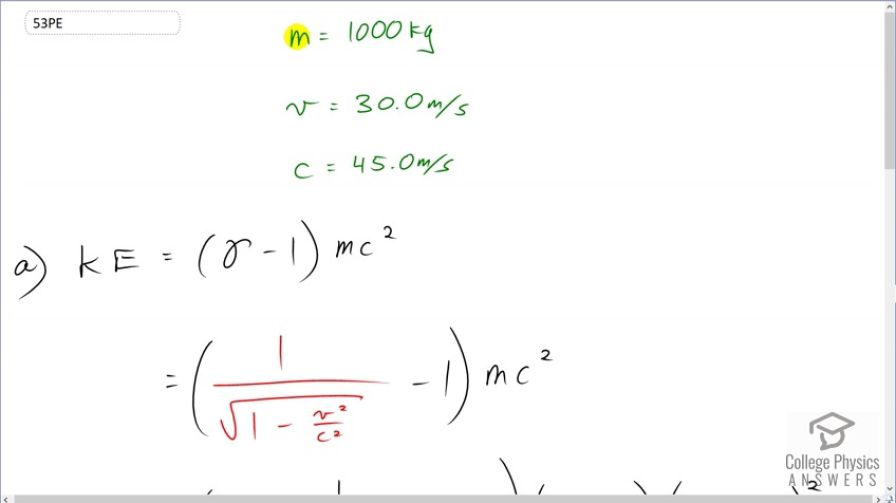 53PE
m = 1000 kg
v = 30.0 m/s
c = 45.0 m/s
a) KE = (γ - 1) mc²
= (1/√(1 - v²/c²) - 1) mc²
College Physics
ANSWERS